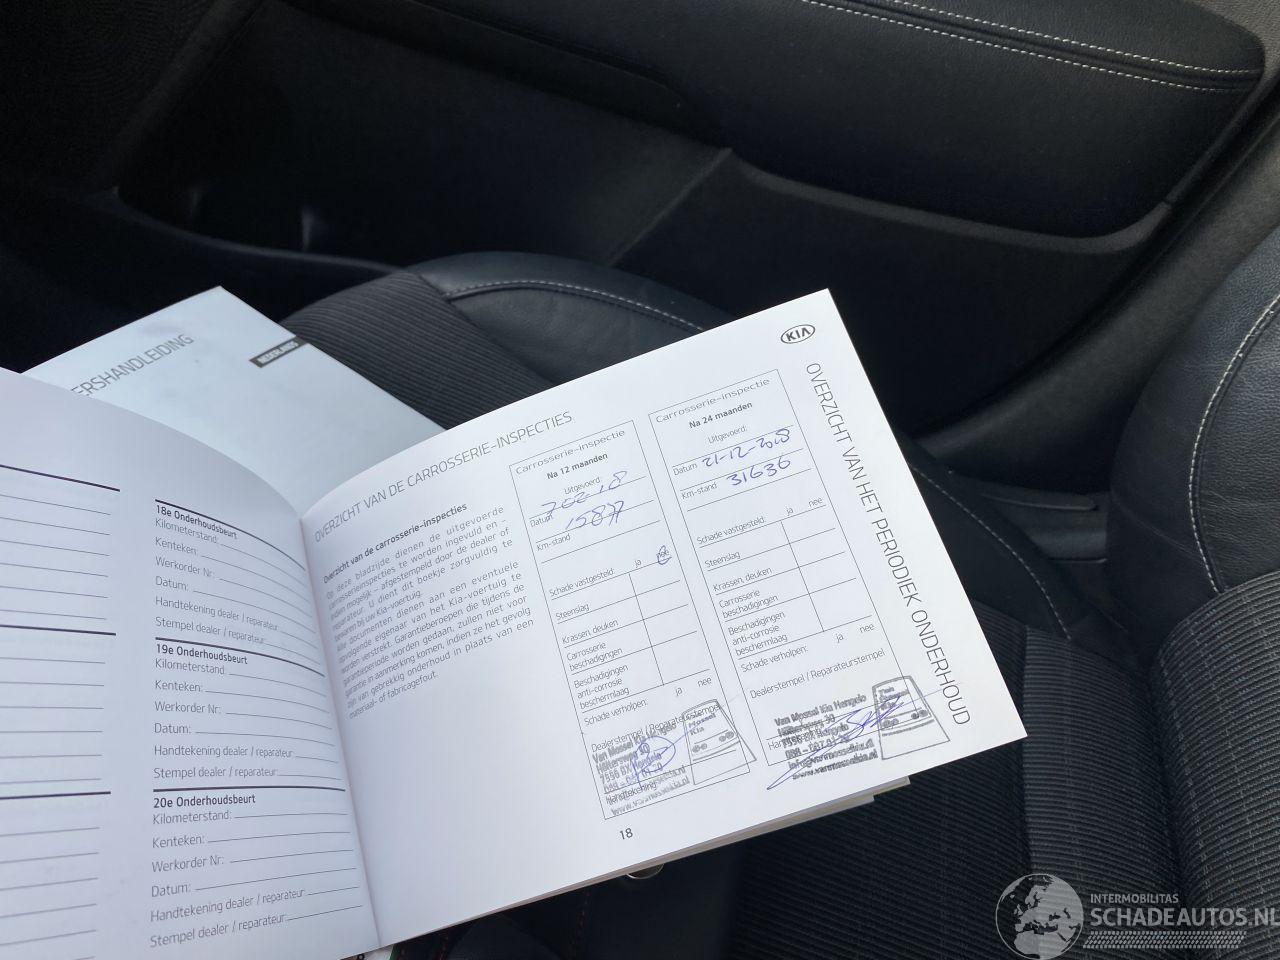 ERSHANDLEIDING
NEDERLANDS
18e Onderhoudsbeurt
Kilometerstand:
Kenteken:
Werkorder Nr:
Datum:
Handtekening dealer / reparateur:
Stempel dealer / reparateur:
19e Onderhoudsbeurt
Kilometerstand:
Kenteken:
Werkorder Nr:
Datum:
Handtekening dealer / reparateur:
Stempel dealer / reparateur:
20e Onderhoudsbeurt
Kilometerstand:
Kenteken:
Werkorder Nr:
Datum:
Handtekening dealer / reparateur:
Stempel dealer / reparateur:
OVERZICHT VAN DE CARROSSERIE-INSPECTIES
Overzicht van de carrosserie-inspecties
Op deze bladzijde dienen de uitgevoerde
carrosserieinspecties te worden ingevuld en -
indien mogelijk - afgestempeld door de dealer of
reparateur. U dient dit boekje zorgvuldig te
bewaren bij uw Kia-voertuig.
Alle documenten dienen aan een eventuele
opvolgende eigenaar van het Kia-voertuig te
worden verstrekt. Garantieberoepen die tijdens de
garantieperiode worden gedaan, zullen niet voor
garantie in aanmerking komen, indien ze het gevolg
zijn van gebrekkig onderhoud in plaats van een
materiaal- of fabricagefout.
Carrosserie-inspectie
Na 12 maanden
Uitgevoerd:
Datum
Km-stand
ja nee
Schade vastgesteld:
Steenslag
Krassen, deuken
Carrosserie
beschadigingen
Beschadigingen
anti-corrosie
beschermlaag
ja nee
Schade verholpen:
Dealerstempel / Reparateurstempel
Van Mossel Kia Hengelo
7556 BX Hengelo
Handtekening
www.vanmosselkia.nl
Mossel
Kia
Carrosserie-inspectie
Na 24 maanden
Uitgevoerd:
Datum 21-12-2018
Km-stand 31636
ja nee
Schade vastgesteld:
Steenslag
Krassen, deuken
Carrosserie
beschadigingen
Beschadigingen
anti-corrosie
beschermlaag
ja nee
Schade verholpen:
Dealerstempel / Reparateurstempel
Van Mossel Kia Hengelo
7556 BX Hengelo
info@vanmosselkia.nl
www.vanmosselkia.nl
18
KIA
OVERZICHT VAN HET PERIODIEK ONDERHOUD
INTERMOBILITAS
SCHADEAUTOS.NL